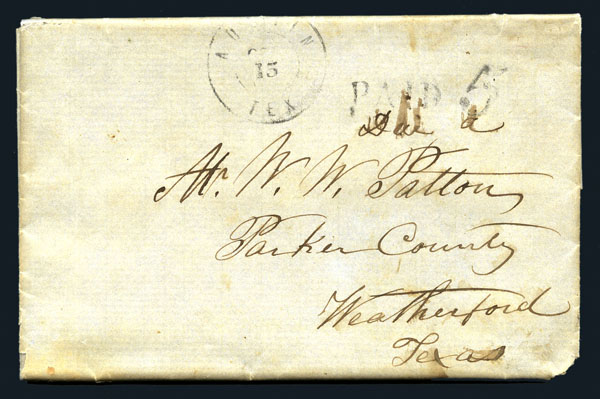 AUSTIN
15
TEX
PAID 5
Due
Mr. W. W. Patton
Parker County
Weatherford
Texas